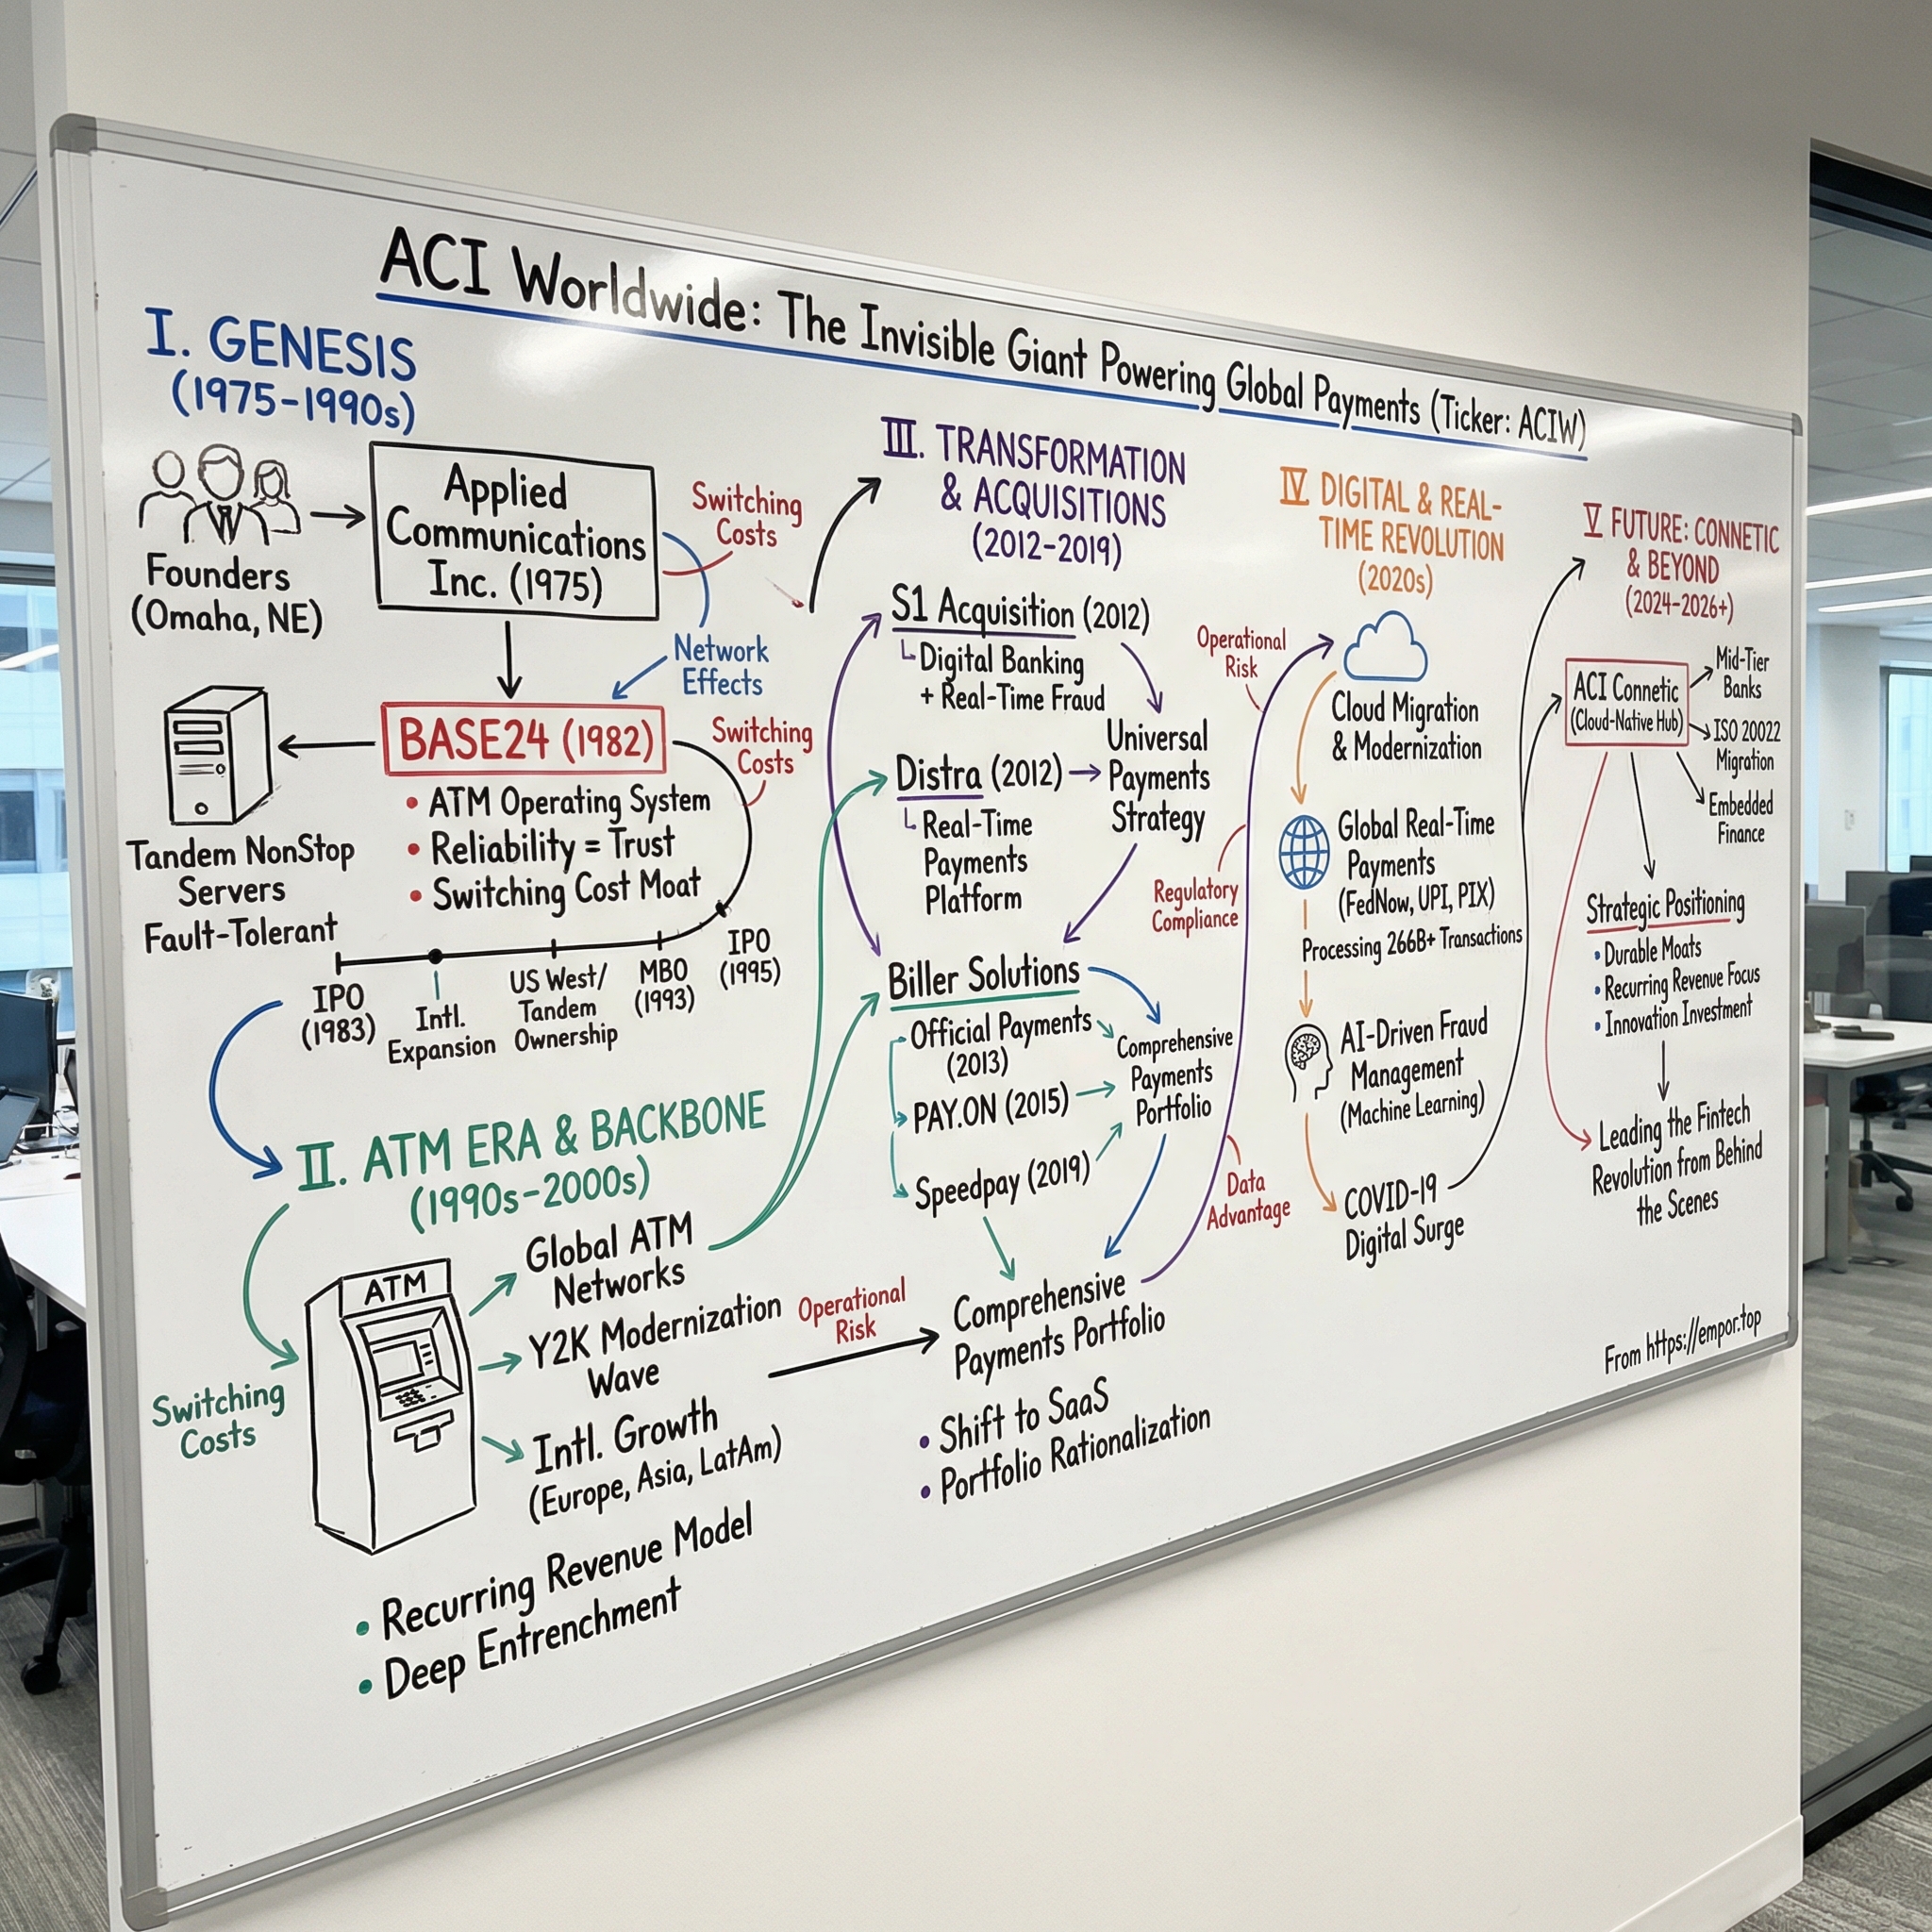 ACI Worldwide: The Invisible Giant Powering Global Payments (Ticker: ACIW)
I. GENESIS
(1975-1990s)
Founders
(Omaha, NE)
Applied
Communications
Inc. (1975)
Switching
Costs
Network
Effects
BASE24 (1982)
• ATM Operating System
• Reliability = Trust
• Switching Cost Moat
Switching
Costs
Tandem NonStop
Servers
Fault-Tolerant
IPO
(1983)
Intl.
Expansion
US West/
Tandem
Ownership
MBO
(1993)
IPO
(1995)
II. ATM ERA & BACKBONE
(1990s-2000s)
ATM
Switching
Costs
Global ATM
Networks
Y2K Modernization
Wave
Intl. Growth
(Europe, Asia, LatAm)
• Recurring Revenue Model
• Deep Entrenchment
Operational
Risk
III. TRANSFORMATION
& ACQUISITIONS
(2012-2019)
S1 Acquisition (2012)
Digital Banking
+ Real-Time Fraud
Distra (2012)
Real-Time
Payments
Platform
Universal
Payments
Strategy
Biller Solutions
Official Payments
(2013)
PAY.ON (2015)
Speedpay (2019)
Comprehensive
Payments
Portfolio
Comprehensive
Payments Portfolio
• Shift to SaaS
• Portfolio Rationalization
Operational
Risk
Regulatory
Compliance
Data
Advantage
IV DIGITAL & REAL-
TIME REVOLUTION
(2020s)
Cloud Migration
& Modernization
Global Real-Time
Payments
(FedNow, UPI, PIX)
Processing 266B+ Transactions
AI-Driven Fraud
Management
(Machine Learning)
COVID-19
Digital Surge
V FUTURE: CONNETIC
& BEYOND
(2024-2026+)
ACI Connetic
(Cloud-Native Hub)
Mid-Tier
Banks
ISO 20022
Migration
Embedded
Finance
Strategic Positioning
• Durable Moats
• Recurring Revenue Focus
• Innovation Investment
Leading the Fintech
Revolution from Behind
the Scenes
From https://empor.top